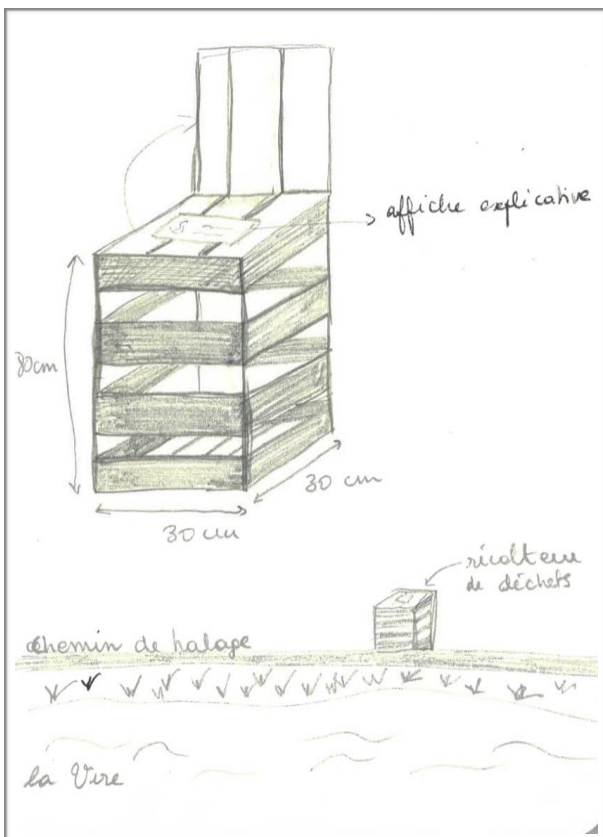 affiche explicative
80cm
30 cm
30 cm
récolteur
de déchets
chemin de halage
la Vire